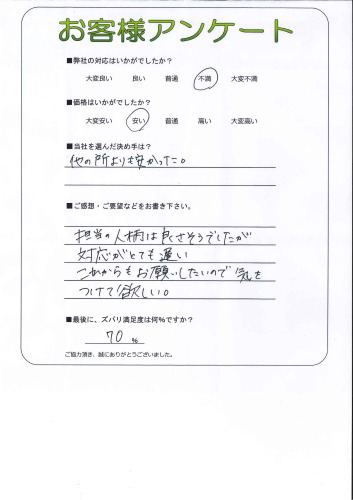 お客様アンケート
■弊社の対応はいかがでしたか？
大変良い 良い 普通 不満 大変不満
■価格はいかがでしたか？
大変安い 安い 普通 高い 大変高い
■当社を選んだ決め手は？
他の所よりも安かった。
■ご感想・ご要望などをお書き下さい。
担当の人柄は良さそうでしたが
対応がとても遅い
これからもお願いしたいので気を
つけて欲しい。
■最後に、ズバリ満足度は何%ですか？
70 %
ご協力頂き、誠にありがとうございました。